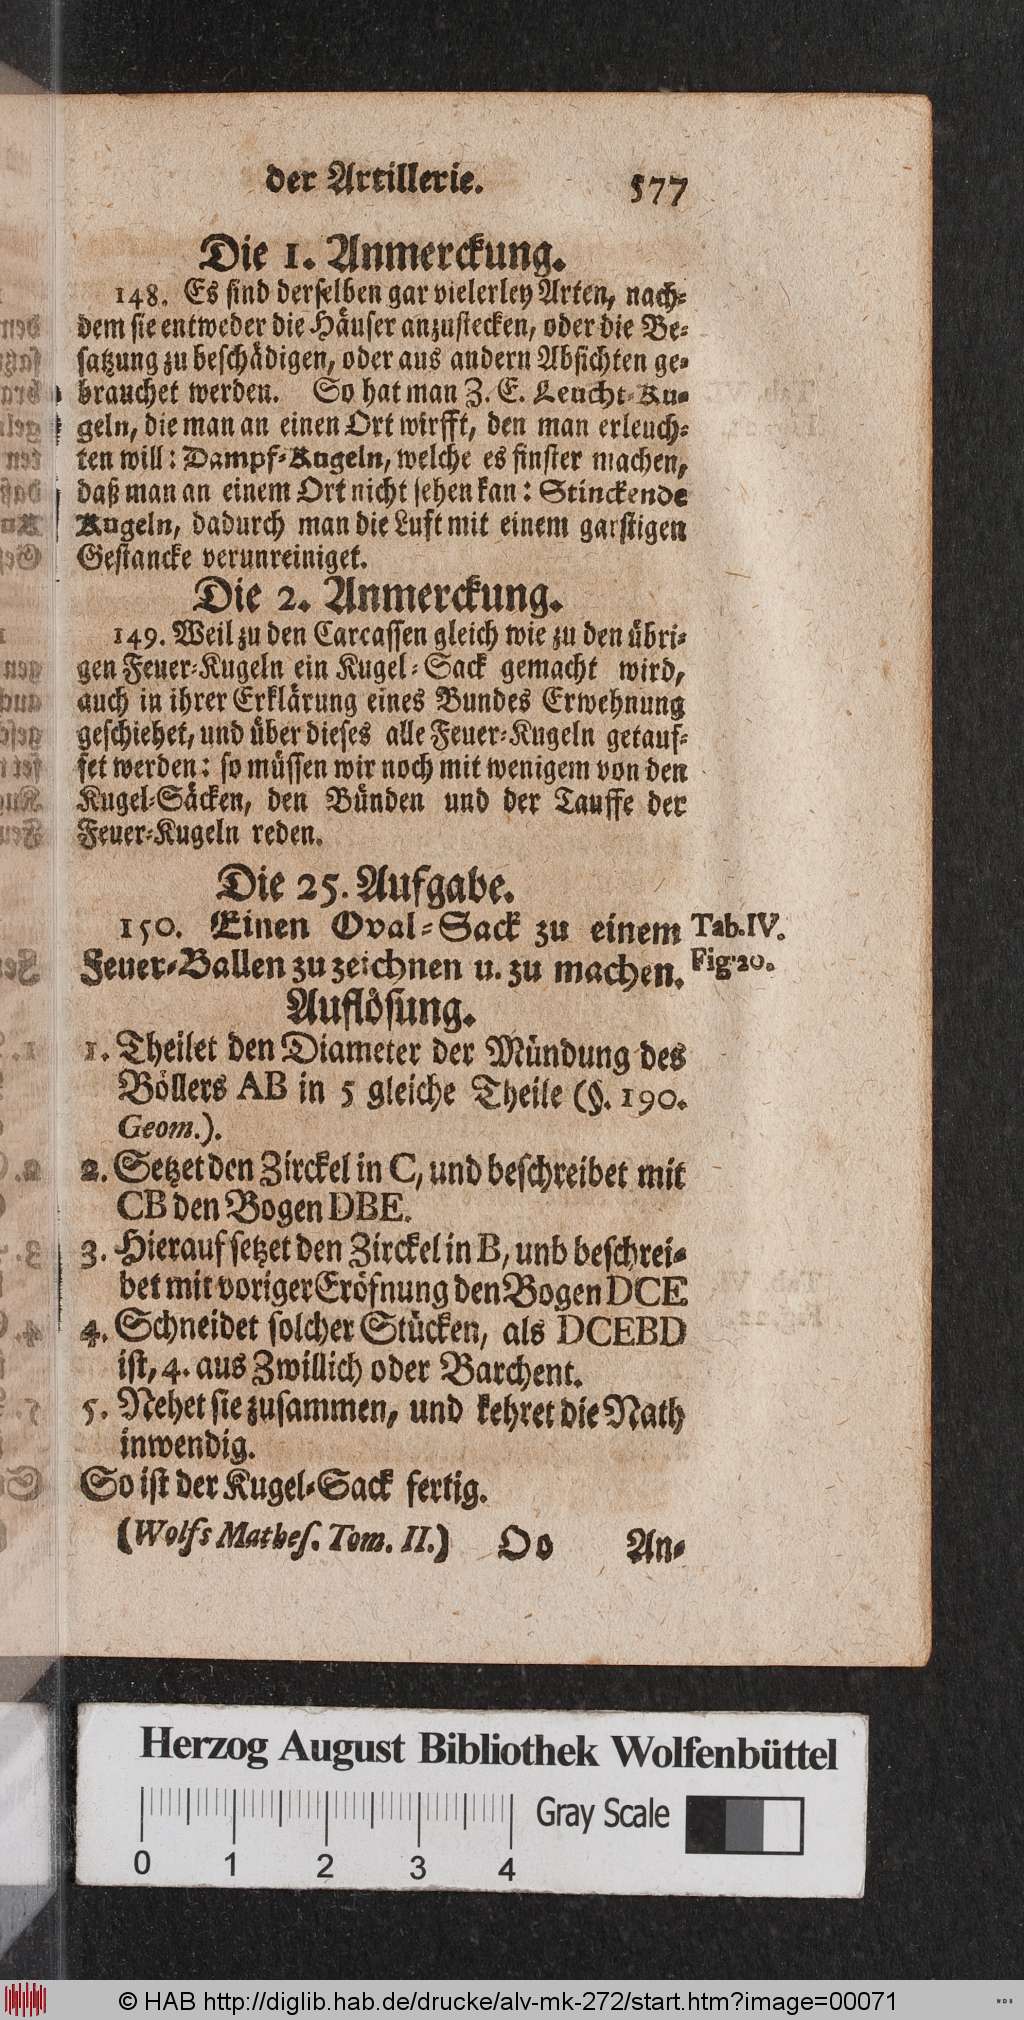 der Artillerie. 577
Die 1. Anmerckung.
148. Es sind derselben gar vielerley Arten, nach-
dem sie entweder die Häuser anzustecken, oder die Be-
satzung zu beschädigen, oder aus andern Absichten ge-
brauchet werden. So hat man Z. E. Leucht-Ku-
geln, die man an einen Ort wirfft, den man erleuch-
ten will: Dampf-Kugeln, welche es finster machen,
daß man an einem Ort nicht sehen kan: Stinckende
Kugeln, dadurch man die Luft mit einem garstigen
Gestancke verunreiniget.
Die 2. Anmerckung.
149. Weil zu den Carcassen gleich wie zu den übri-
gen Feuer-Kugeln ein Kugel-Sack gemacht wird,
auch in ihrer Erklärung eines Bundes Erwehnung
geschiehet, und über dieses alle Feuer-Kugeln getauf-
fet werden: so müssen wir noch mit wenigem von den
Kugel-Säcken, den Bünden und der Tauffe der
Feuer-Kugeln reden.
Die 25. Aufgabe.
150. Einen Oval-Sack zu einem Tab.IV.
Feuer-Ballen zu zeichnen u. zu machen. Fig.20.
Auflösung.
1. Theilet den Diameter der Mündung des
Böllers AB in 5 gleiche Theile (§. 190.
Geom.).
2. Setzet den Zirckel in C, und beschreibet mit
CB den Bogen DBE.
3. Hierauf setzet den Zirckel in B, unb beschrei-
bet mit voriger Eröfnung den Bogen DCE
4. Schneidet solcher Stücken, als DCEBD
ist, 4. aus Zwillich oder Barchent.
5. Nehet sie zusammen, und kehret die Nath
inwendig.
So ist der Kugel-Sack fertig.
(Wolfs Mathes. Tom. II.) Oo An-
Herzog August Bibliothek Wolfenbüttel
Gray Scale
0 1 2 3 4
© HAB http://diglib.hab.de/drucke/alv-mk-272/start.htm?image=00071